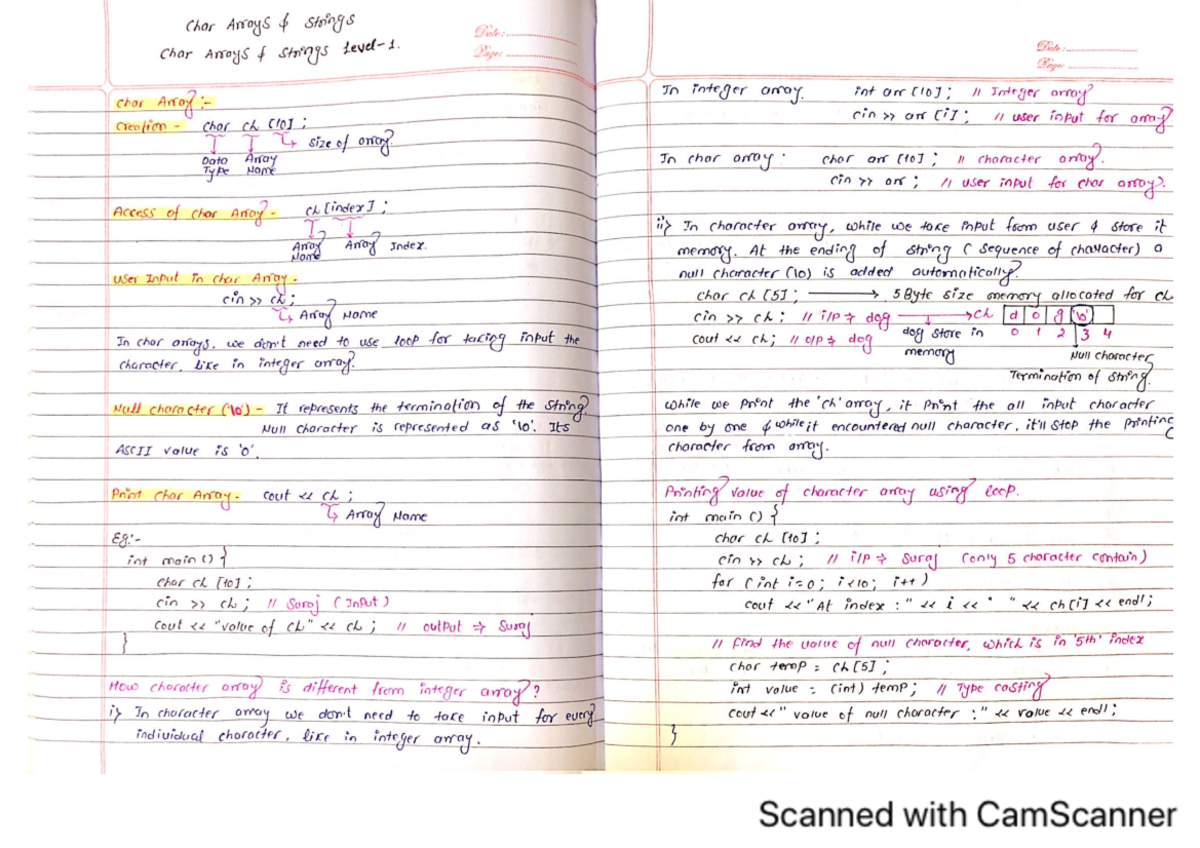 Char Arrays & Strings
Char Arrays & Strings Level-1.
Date:
Page:
Char Array :-
Creation - char ch [10] ;
Size of array.
Data Array
Type Name
Access of Char Array - ch [index] ;
Array Array Index.
Name
User Input in Char Array -
cin >> ch ;
Array Name
In char arrays, we don't need to use loop for taking input the
character, like in integer array.
Null character ('\0') - It represents the termination of the string.
Null character is represented as '\0'. Its
ASCII value is '0'.
Print Char Array - cout << ch ;
Array Name
Eg:-
int main () {
char ch [10] ;
cin >> ch ; // Suraj (Input)
cout << "value of ch" << ch ; // output => Suraj
}
How character array is different from integer array ?
i> In character array we don't need to take input for every
individual character, like in integer array.
Date:
Page:
In integer array. int arr [10] ; // Integer array
cin >> arr [i] ; // user input for array
In char array : char arr [10] ; // character array.
cin >> arr ; // user input for char array.
ii> In character array, while we take input from user & store it
memory. At the ending of string ( sequence of character) a
null character (\0) is added automatically.
char ch [5] ; → 5 Byte size memory allocated for ch
cin >> ch ; // i/p => dog → ch d o g '\0'
cout << ch ; // o/p => dog dog store in 0 1 2 3 4
memory Null character
Termination of string.
While we print the 'ch' array, it print the all input character
one by one & while it encountered null character, it'll stop the printing
character from array.
Printing value of character array using loop.
int main () {
char ch [10] ;
cin >> ch ; // i/p => Suraj (only 5 character contain)
for (int i=0 ; i<10 ; i++)
cout << "At index : " << i << " " << ch[i] << endl ;
// find the value of null character, which is in '5th' index
char temp = ch [5] ;
int value = (int) temp ; // Type casting
cout << " value of null character :" << value << endl ;
}
Scanned with CamScanner